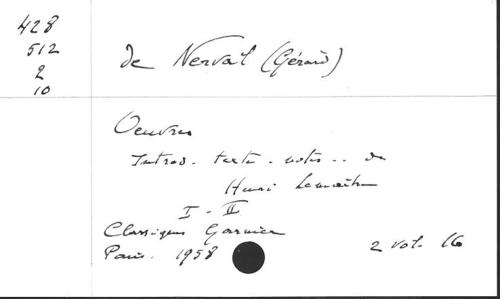 428
512
2
10
de Nerval (Gérard)
Oeuvres
Introd. texte. notes.. de
Henri Lemaître
I - II
Classiques Garnier
Paris. 1958
2 vol. 16